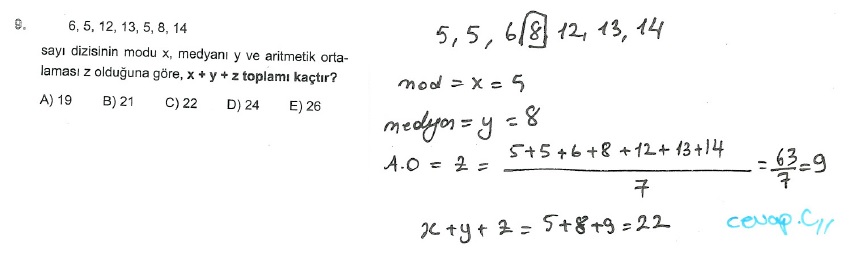 9. 6, 5, 12, 13, 5, 8, 14
sayı dizisinin modu x, medyanı y ve aritmetik orta-
laması z olduğuna göre, x + y + z toplamı kaçtır?
A) 19 B) 21 C) 22 D) 24 E) 26
5, 5, 6, 8, 12, 13, 14
mod = x = 5
medyan = y = 8
A.O = z = 5+5+6+8+12+13+14 / 7 = 63/7 = 9
x+y+z = 5+8+9 = 22 cevap. C//